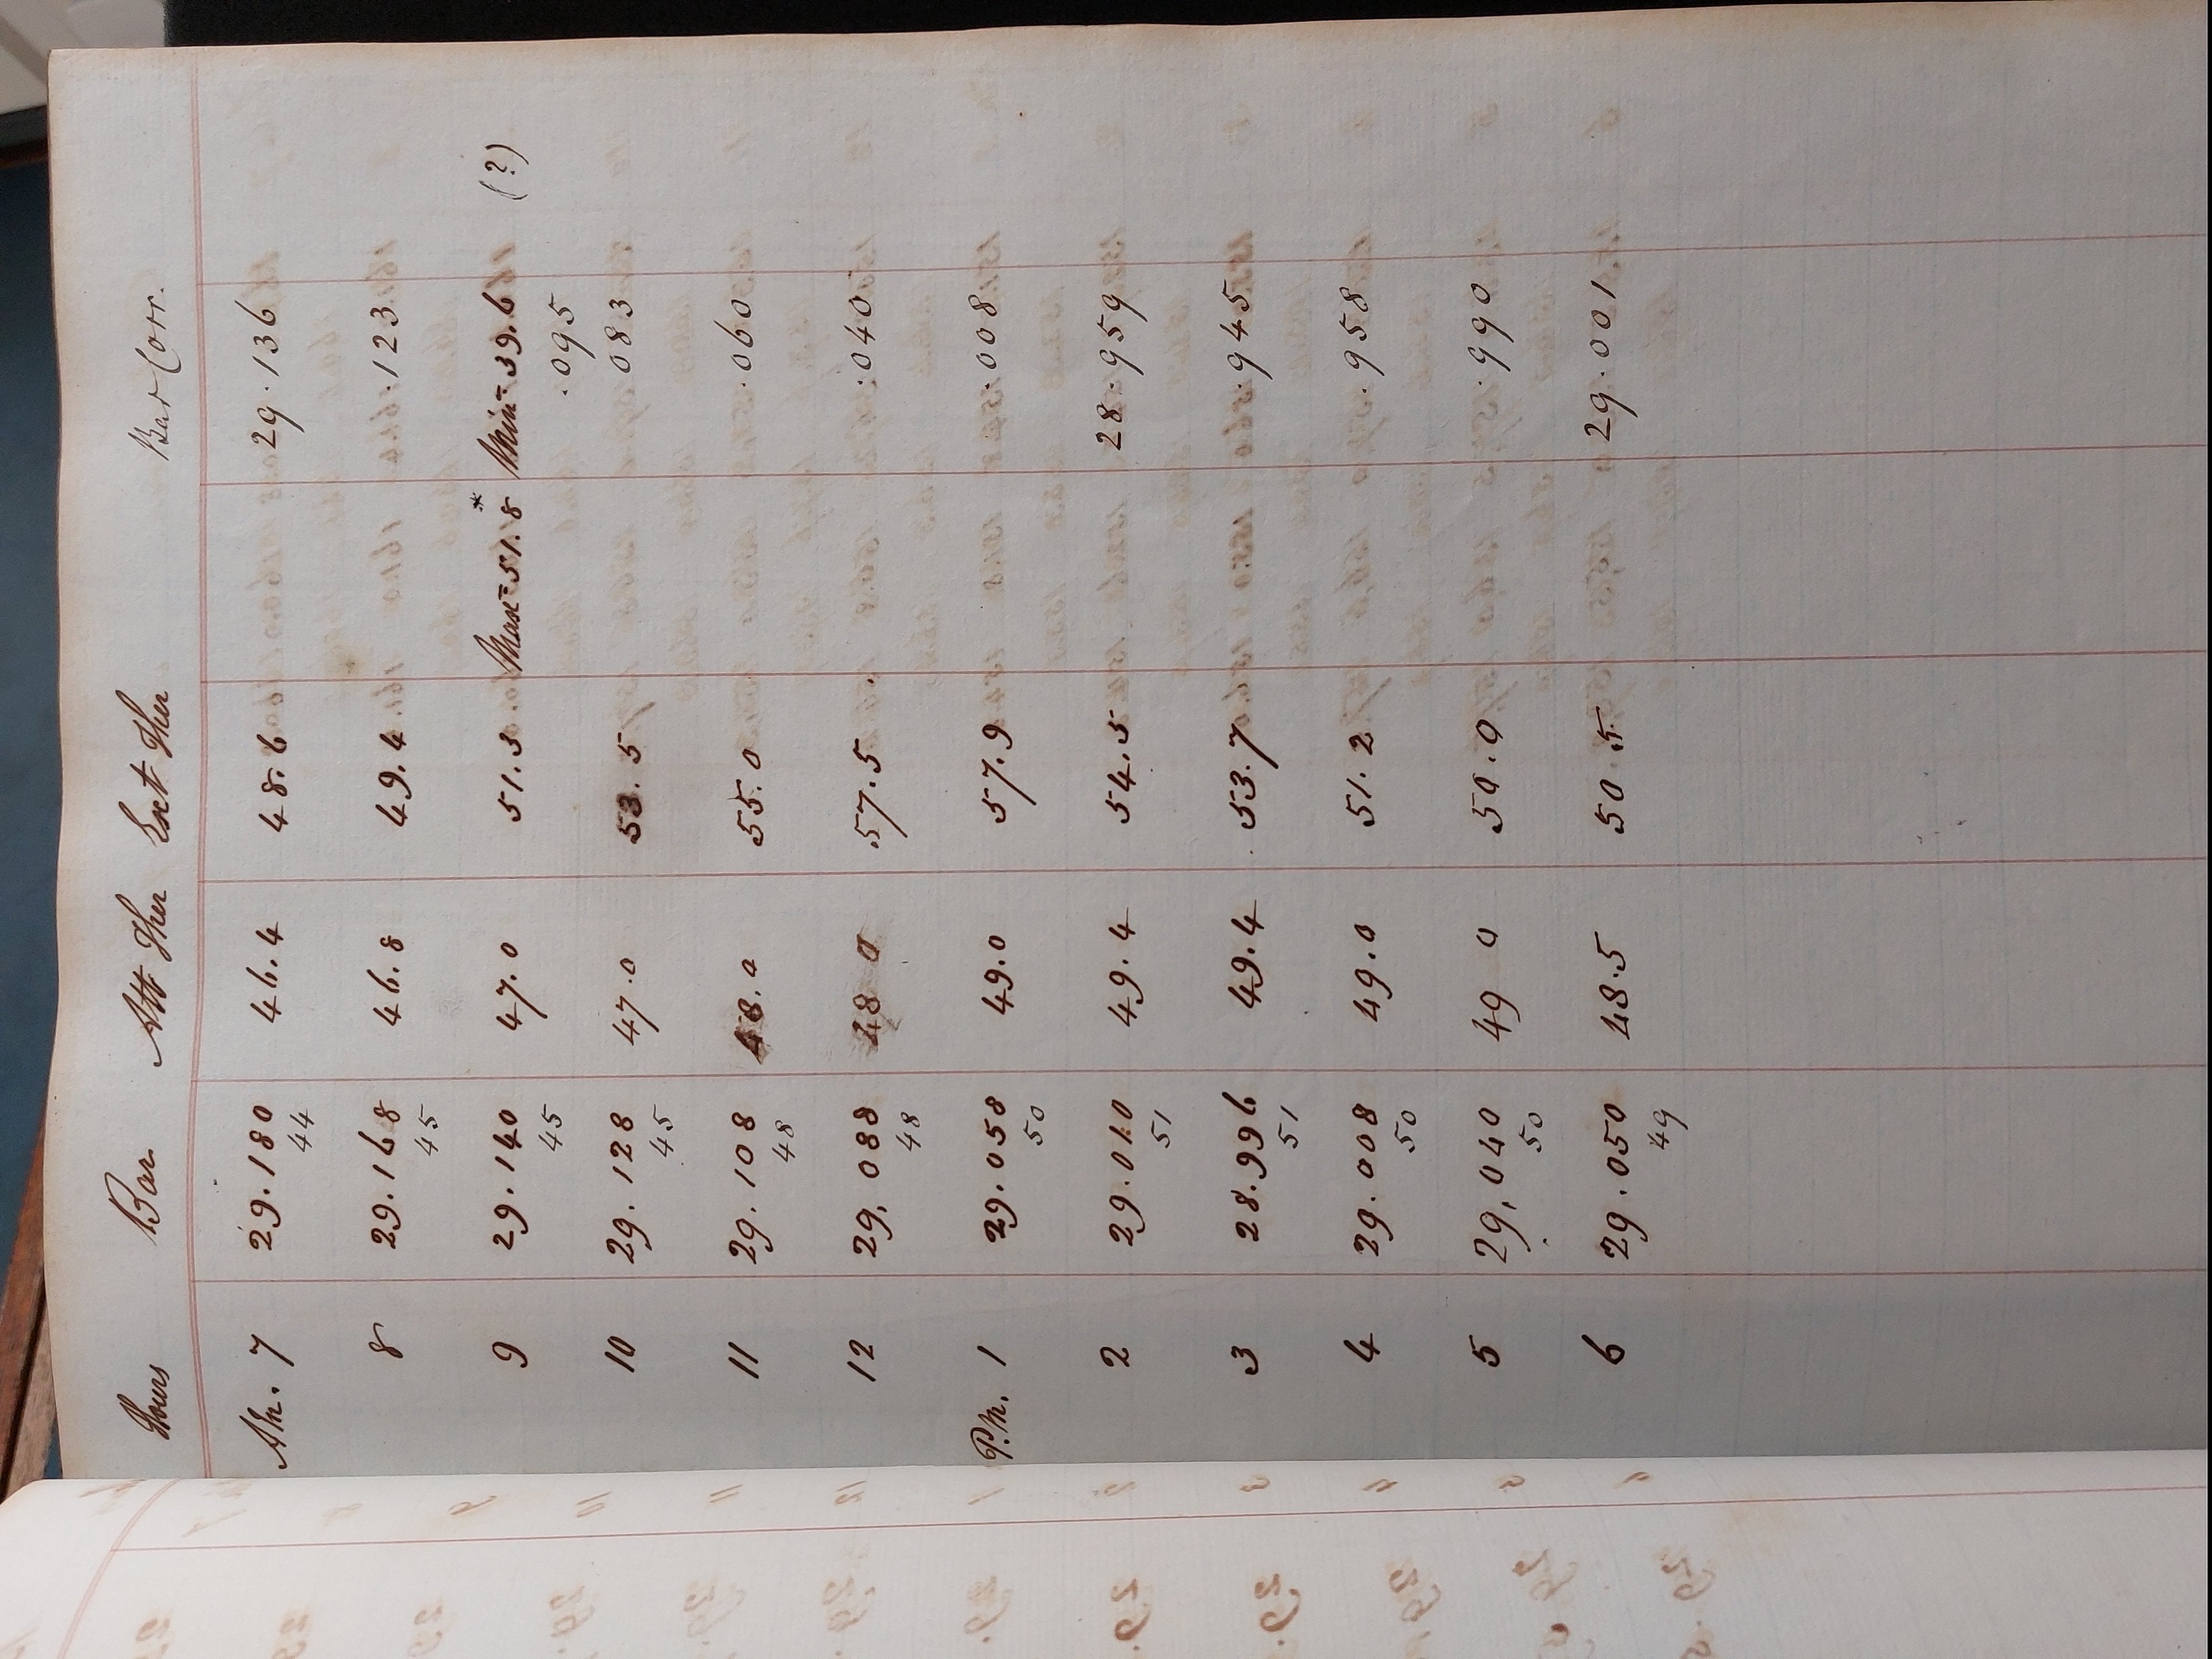 Hours Bar Att Ther Ext Ther Bar Corr.
AM. 7 29.180 46.4 48.6 29.136
44
8 29.168 46.8 49.4 .123
45
9 29.140 47.0 51.3 Max= 51.8* Min= 39.6 (?)
45 .095
10 29.128 47.0 53.5 083
45
11 29.108 48.0 55.0 .060
48
12 29,088 48 0 57.5 .040
48
P.M. 1 29.058 49.0 57.9 .008
50
2 29.010 49.4 54.5 28.959
51
3 28.996 49.4 53.7 .945
51
4 29.008 49.0 51.2 .958
50
5 29,040 49 0 50.0 .990
50
6 29.050 48.5 50 5 29.001
49